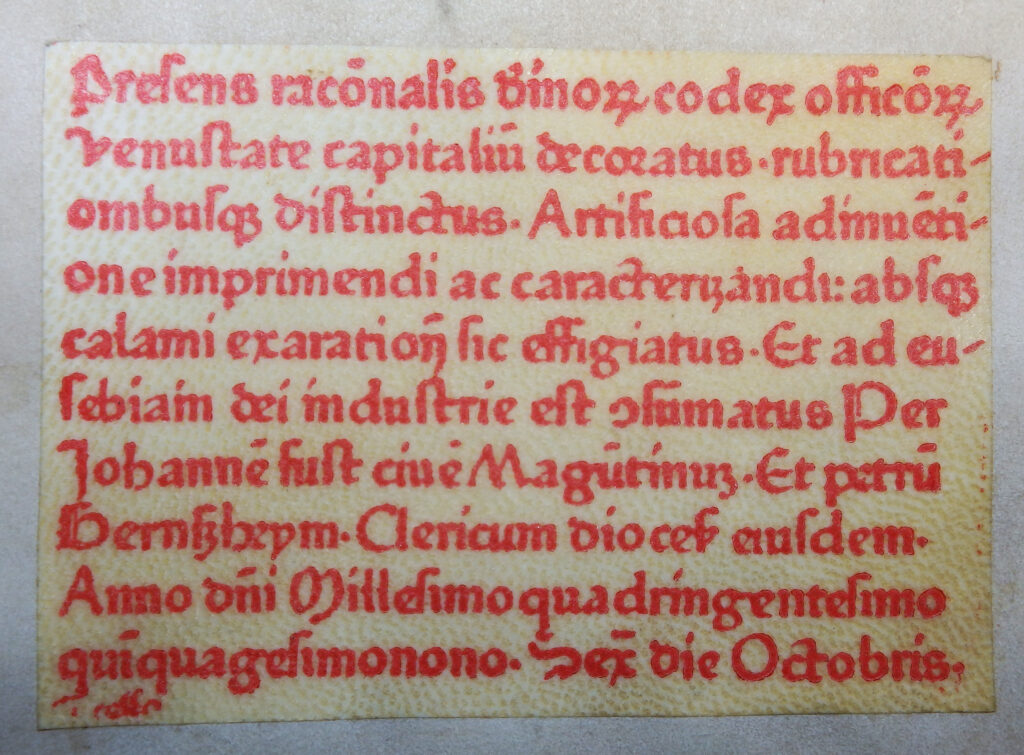 Presens racōnalis diuinoꝝ codex officōꝝ
venustate capitaliū decoratus · rubricati-
onibusqꝫ distinctus. Artificiosa adinuēti-
one imprimendi ac caracterizandi: absqꝫ
calami exarationē sic effigiatus · Et ad eu-
sebiam dei industrie est ↄsūmatus Per
Johannē fust ciuē Magūtinuꝫ · Et petrū
Gernßheym · Clericum dioceſ eiusdem.
Anno dn̄i Millesimo quadringentesimo
quīquagesimonono. Sex̄ die Octobris.